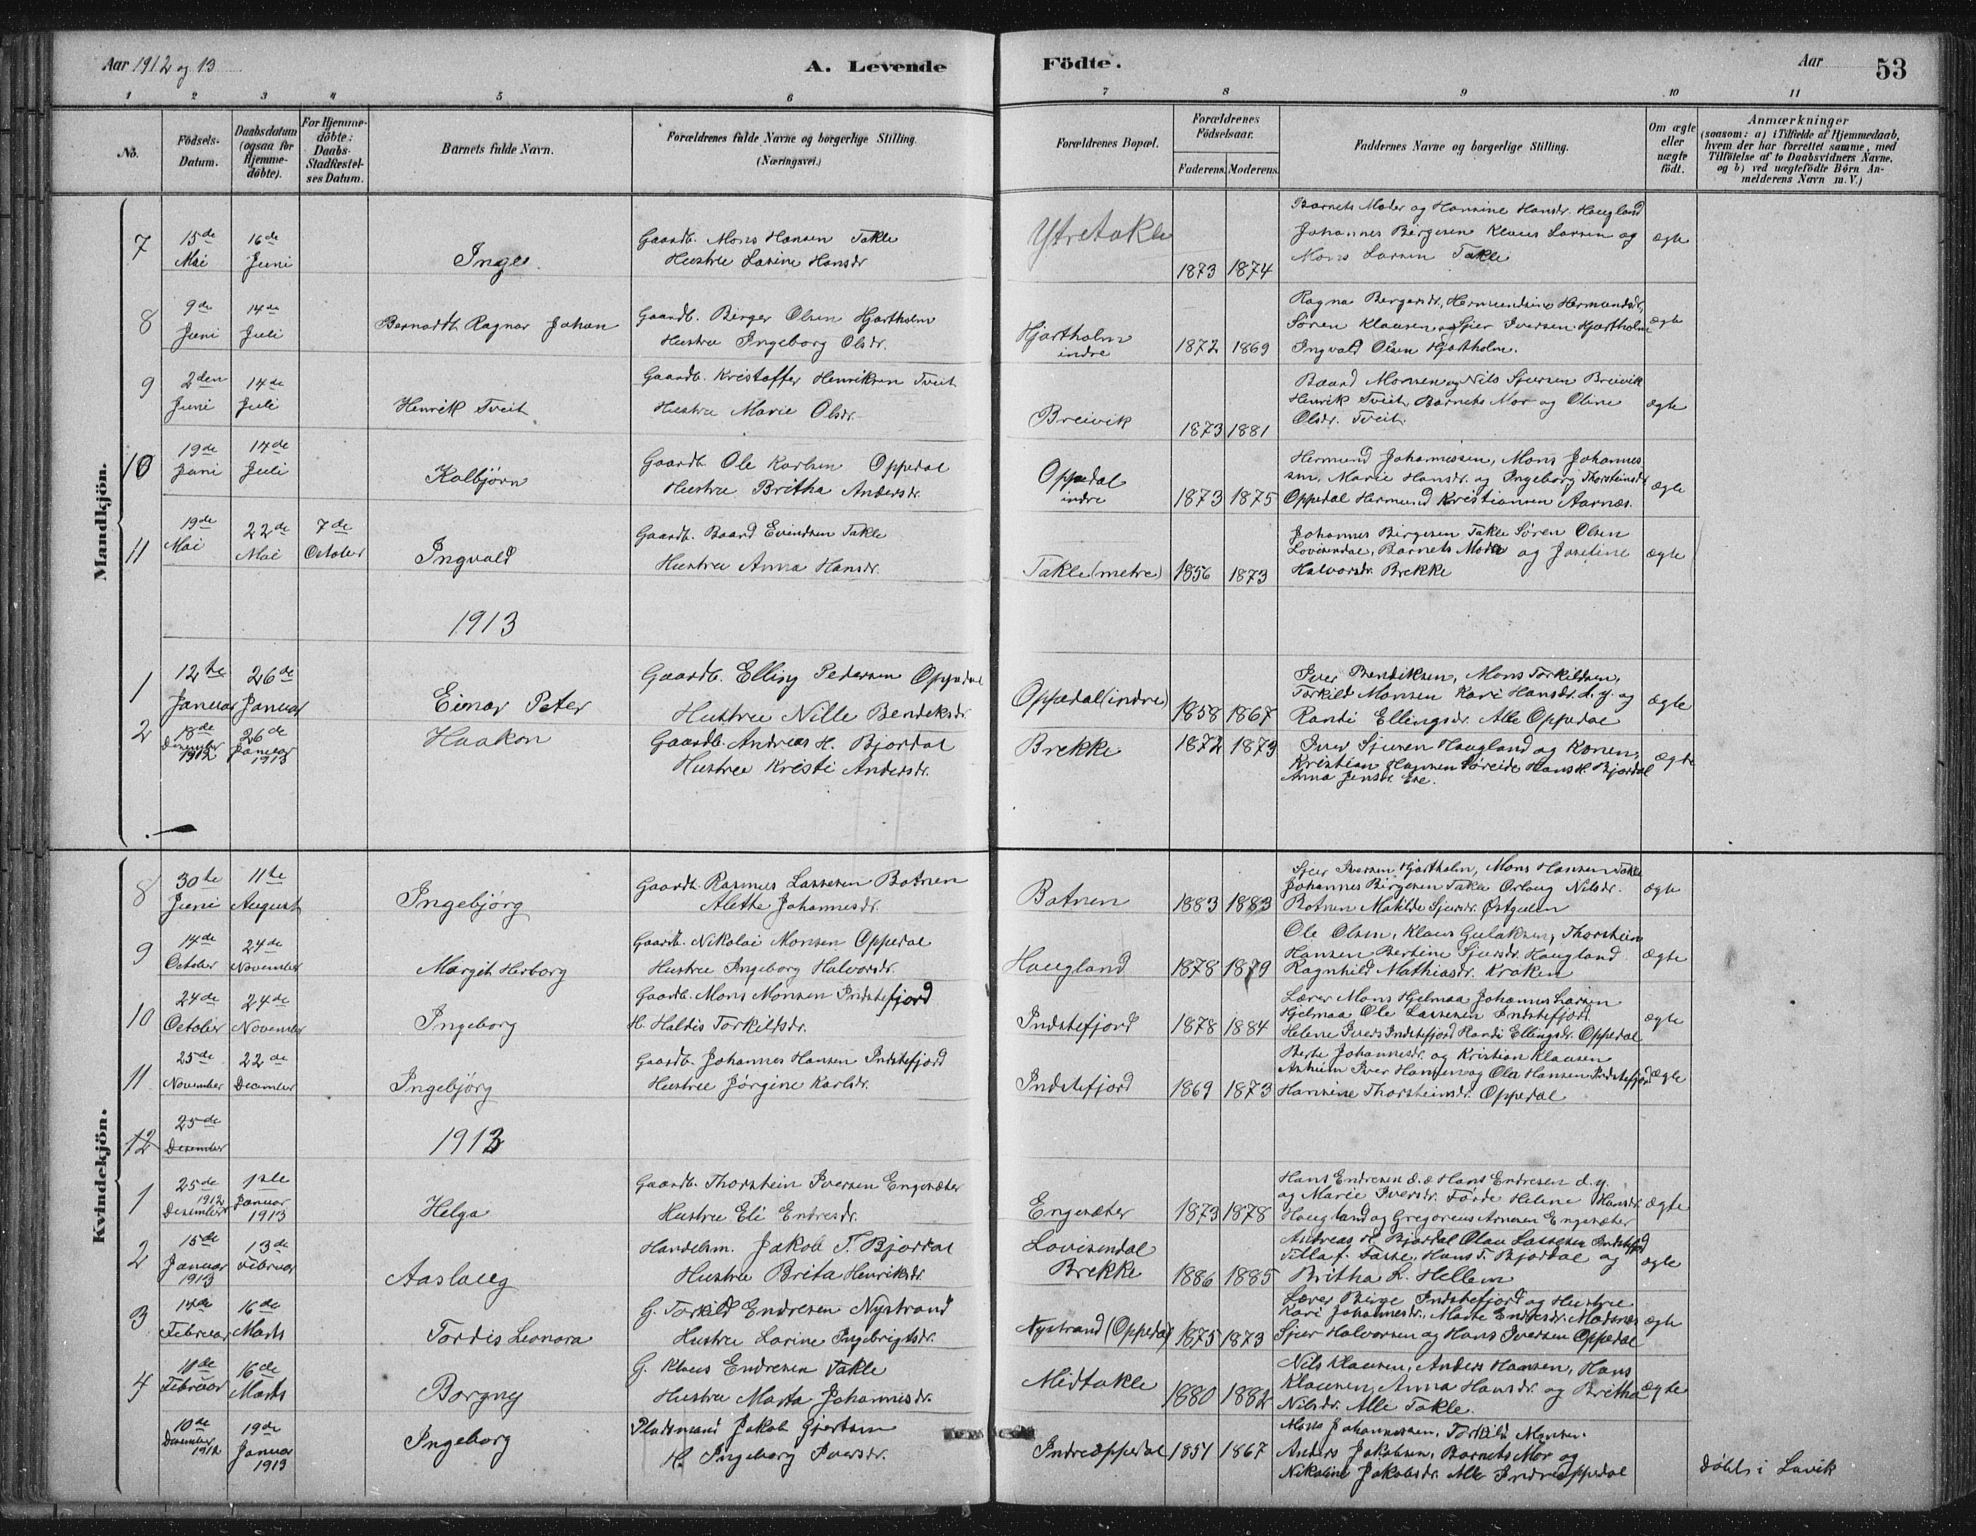 Aar 1912 og 13
A. Levende Födte.
Aar
53
1 2 3 4 5 6 7 8 9 10 11
No.
Födsels-Datum.
Daabsdatum (ogsaa for Hjemme-döbte).
For Hjemme-döbte: Daabs-Stadfæstel-ses Datum.
Barnets fulde Navn.
Forældrenes fulde Navne og borgerlige Stilling. (Næringsvei.)
Forældrenes Bopæl.
Forældrenes Födselsaar.
Faderens. Moderens.
Faddernes Navne og borgerlige Stilling.
Om ægte eller uægte födt.
Anmærkninger
(saasom: a) i Tilfælde af Hjemmedaab, hvem der har forrettet samme, med Tilföielse af to Daabsvidners Navne, og b) ved uægtefödte Börn An-melderens Navn m. V.)
Mandkjön.
7 15de Mai 16de Juni Inge
Gaardb. Mons Hansen Takle
Hustru Lasine Hansdr.
Ytretakle 1873 1874
Barnets Moder og Hansine Hansdr. Haugland
Johannes Bergesen Klaus Larsen og
Mons Larsen Takle
ægte
8 9de Juni 14de Juli Bernardt Ragnar Johan
Gaardb. Birger Olsen Hjartholm
Hustru Ingeborg Olsdr.
Hjartholm indre 1872 1869
Ragna Bergersdr., Hermundsine Hermundsdr,
Søren Klausen og Sjur Iversen Hjartholm
Ingvald Olsen Hjartholm.
ægte
9 2den Juni 14de Juli Henrik Tveit
Gaardb. Kristoffer Henriksen Tveit
Hustru Marie Olsdr.
Breivik 1873 1881
Baard Monsen og Nils Sjursen Breivik
Henrik Tveit, Barnets Mor og Oline
Olsdr. Tveit.
ægte
10 19de Juni 14de Juli Kolbjørn
Gaardb. Ole Karlsen Oppedal
Hustru Britha Andersdr.
Oppedal indre 1873 1875
Hermund Johannessen, Mons Johannes
sen, Marie Hansdr. og Ingeborg Thorsteinsdr
Oppedal Hermund Kristiansen Aarnæs.
ægte
11 19de Mai 22de Mai 7de October Ingvald
Gaardb. Baard Evindsen Takle
Hustru Anna Hansdr.
Takle (metre) 1856 1873
Johannes Birgesen Takle Søren Olsen
Lovisendal, Barnets Moder og Josefine
Halvorsdr. Brekke
ægte
1913
1 12te Januar 26de Januar Einar Peter
Gaardb. Elling Pedersen Oppedal
Hustru Nille Bendiksdr.
Oppedal (indre) 1858 1867
Iver Bendiksen, Mons Torkildsen,
Torkild Monsen Kari Hansdr. d.y. og
Randi Ellingsdr. Alle Oppedal
ægte
2 18de December 1912 26de Januar 1913 Haakon
Gaardb. Andreas H. Bjordal
Hustru Kristi Andersdr.
Brekke 1872 1873
Iver Sjursen Haugland og Konen,
Kristian Hansen Søreide Hans H. Bjordal
Anna Jensdr.
ægte
Kvindekjön.
8 30te Juni 11te August Ingebjørg
Gaardb. Rasmus Lassesen Botnen
Alethe Johannesdr.
Botnen 1883 1883
Sjur Iversen Hjartholm, Mons Hansen Takle
Johannes Birgesen Takle Orlaug Nilsdr.
Botnen Matilde Sjursdr. Østgulen
ægte
9 14de October 24de November Margit Herborg
Gaardb. Nikolai Monsen Oppedal
Hustru Ingeborg Halvorsdr.
Haugland 1878 1879
Ole Olsen, Klaus Gulaksen, Thorstein
Hansen Bertine Sjursdr. Haugland.
Ragnhild Mathiasdr. Kraken
ægte
10 24de October 24de November Ingeborg
Gaardb. Mons Monsen Indstefjord
H. Haldis Torkildsdr.
Indstefjord 1878 1884
Lærer Mons Hjelmaa Johannes Larsen
Hjelmaa Ole Lassesen Indstefjord
Helene Iversdr. Indstefjord Randi Ellingsdr. Oppedal
ægte
11 25de November 22de December Ingebjörg
Gaardb. Johannes Hansen Indstefjord
Hustru Jörgine Karlsdr.
Indstefjord 1869 1873
Berte Johannesdr. og Kristian Klausen
Iver Hansen og Ola Hansen Indstefjord
Hansine Thorsteinsdr. Oppedal
ægte
12 25de Desember
1913
1 25de Desember 1912 1ste Januar 1913 Helga
Gaardb. Thorstein Iversen Engesæter
Hustru Eli Endresdr.
Engesæter 1873 1878
Hans Endresen d.e Hans Endresen d.y.
og Marie Iversdr. Førde Helene Hansdr.
Haugland og Gregorius Arnesen Engesæter
ægte
2 15de Januar 1913 13de Februar Aaslaug
Handelsm. Jakob T. Bjordal
Hustru Brita Henriksdr.
Lovisendal Brekke 1886 1885
Andreas H. Bjordal Olau Lassesen Indstefjord
Hans T. Bjordal og
Britha L. Hellem
ægte
3 14de Februar 16de Marts Tordis Leonora
G. Torkild Endresen Nystrand
Hustru Larine Ingebrigtsdr.
Nystrand (Oppedal) 1875 1873
Lærer Birge Indstefjord og Hustru
Kari Johannesdr., Marte Endresdr. Madsnes
Sjur Halvorsen og Hans Iversen Oppedal
ægte
4 11de Februar 16de Marts Borgny
G. Klaus Endresen Takle
Hustru Marta Johannesdr.
Midtakle 1880 1882
Nils Klausen, Anders Hansen, Hans
Klausen, Anna Hansdr. og Britha
Nilsdr. Alle Takle.
ægte
10de December 1912 19de Januar 1913 Ingeborg
Pladsmand Jakob Gjertsen
H. Ingeborg Iversdr.
Indreoppedal 1851 1867
Mons Johannessen, Torkild Monsen.
Anders Jakobsen, Barnets Mor og
Nikoline Jakobsdr. Alle Indreoppedal
Døbt i Lavik